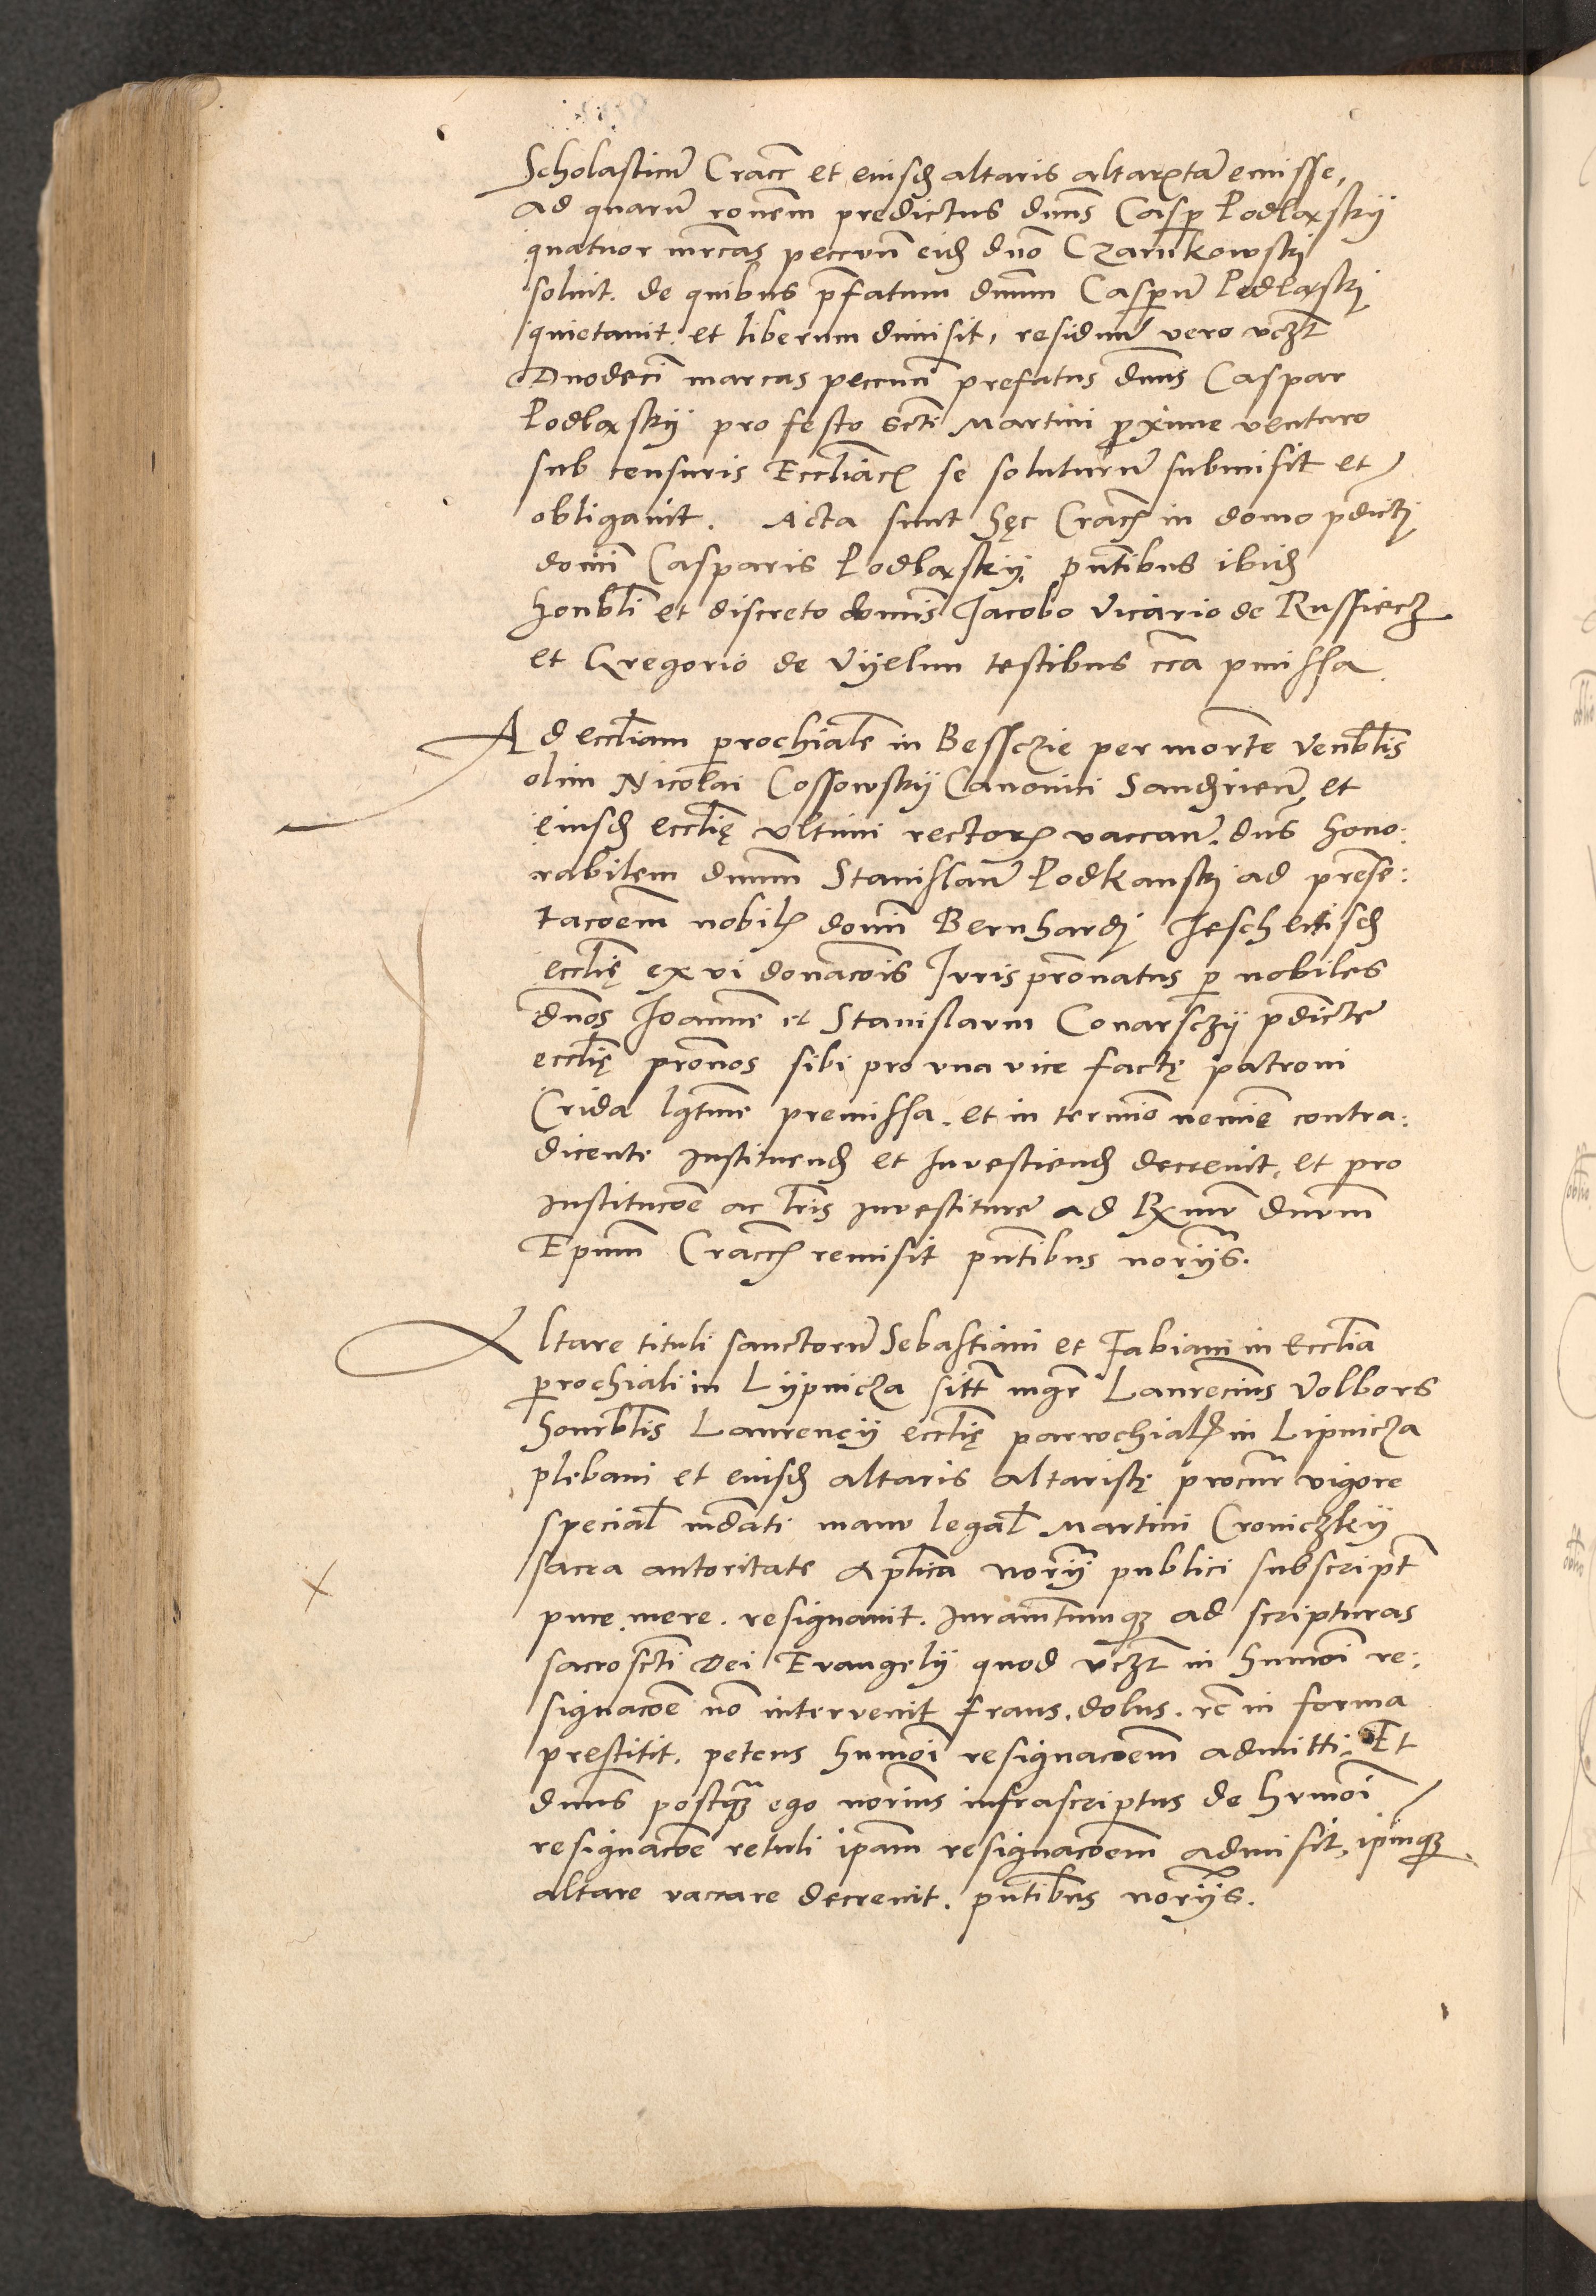 Scholasticu͞ Cracc͞ et eiusd altaris altarista͞ emisse,
ad quaru͞ ro͞nem predictus dn͞us Casp Podlaskÿ
quatuor mr͞cas peccun͞ eid dn͞o Czarnkowskj
soluit. de quibus p͞fatum dn͞um Casparu͞ Podlaskj
quietauit et liberum dimisit, residuu͞ vero vcz͞t
Duodeci͞ marcas peccun͞ prefatus dn͞us Caspar
Podlaskÿ pro festo sc͞ti Martini proxime venturo
sub censuris Eccl͞iac se soluturu͞ submisit et
obligauit. Acta sunt hęc Crac͞ in domo p͞dictj
domi͞ Casparis Podlaskÿ, pn͞tibus ibid
honbl͞i et discreto domi͞s Jacobo vicario de Russiecz
et Gregorio de Vÿelun testibus cc͞a pmissa
Ad eccl͞iam parochiale͞ in Bessczie per morte͞ ven͞blis
olim Nicolai Cossowskÿ Canonici Sandʒirien͞, et
eiusd eccl͞ię vltimi rector vaccan͞. dn͞s hono:
rabilem dn͞um Stanislau͞ Podkanskj ad prese͞:
taco͞em nobil domi͞ Bernhardj Jeschek eiusd
eccl͞ię ex vi donaco͞is Iuris pro͞natus p nobiles
dn͞os Joanne͞ et Stanislaum Conarsczÿ p͞dicte
eccl͞ię pro͞nos sibi pro vna vice factę patroni
Crida lg͞time premissa. et in termi͞o nemi͞e contra:
dicente instituend et Inuestiend decreuit, et pro
instituco͞e ac lr͞is inuestiture ad Rx͞mu͞ dn͞um
Epum͞ Cracc͞ remisit pn͞tibus norÿ͞s.
Altare tituli sanctoru͞ Sebastiani et Fabiani in eccl͞ia
parochiali in Lÿpnicza sitt͞ mgr͞ Laurencius Volbors
honorabl͞is Laurencÿ eccl͞ię parrochial in Lipnicza
plebani et eiusd altaris altaristę procur͞ vigore
special͞ md͞ati manu legal͞ Martini Croniczkÿ
sacra autoritate apl͞ica norÿ͞ publici subscript͞
pure, mere. resignauit. Iuram͞tumqʒ ad scripturas
sacrosc͞ti Dei Euangelÿ quod vcz͞t in hm͞oi re:
signaco͞e no͞ interuenit fraus, dolus. rc͞ in forma
prestitit. petens hm͞oi resignaco͞em admitti. Et
dn͞us postqʒ͞ ego norius͞ infrascriptus de hm͞oi
resignaco͞e retuli ipam͞ resignaco͞em admisit, ipm͞qʒ
altare vaccare decreuit. pn͞tibus norÿ͞s.